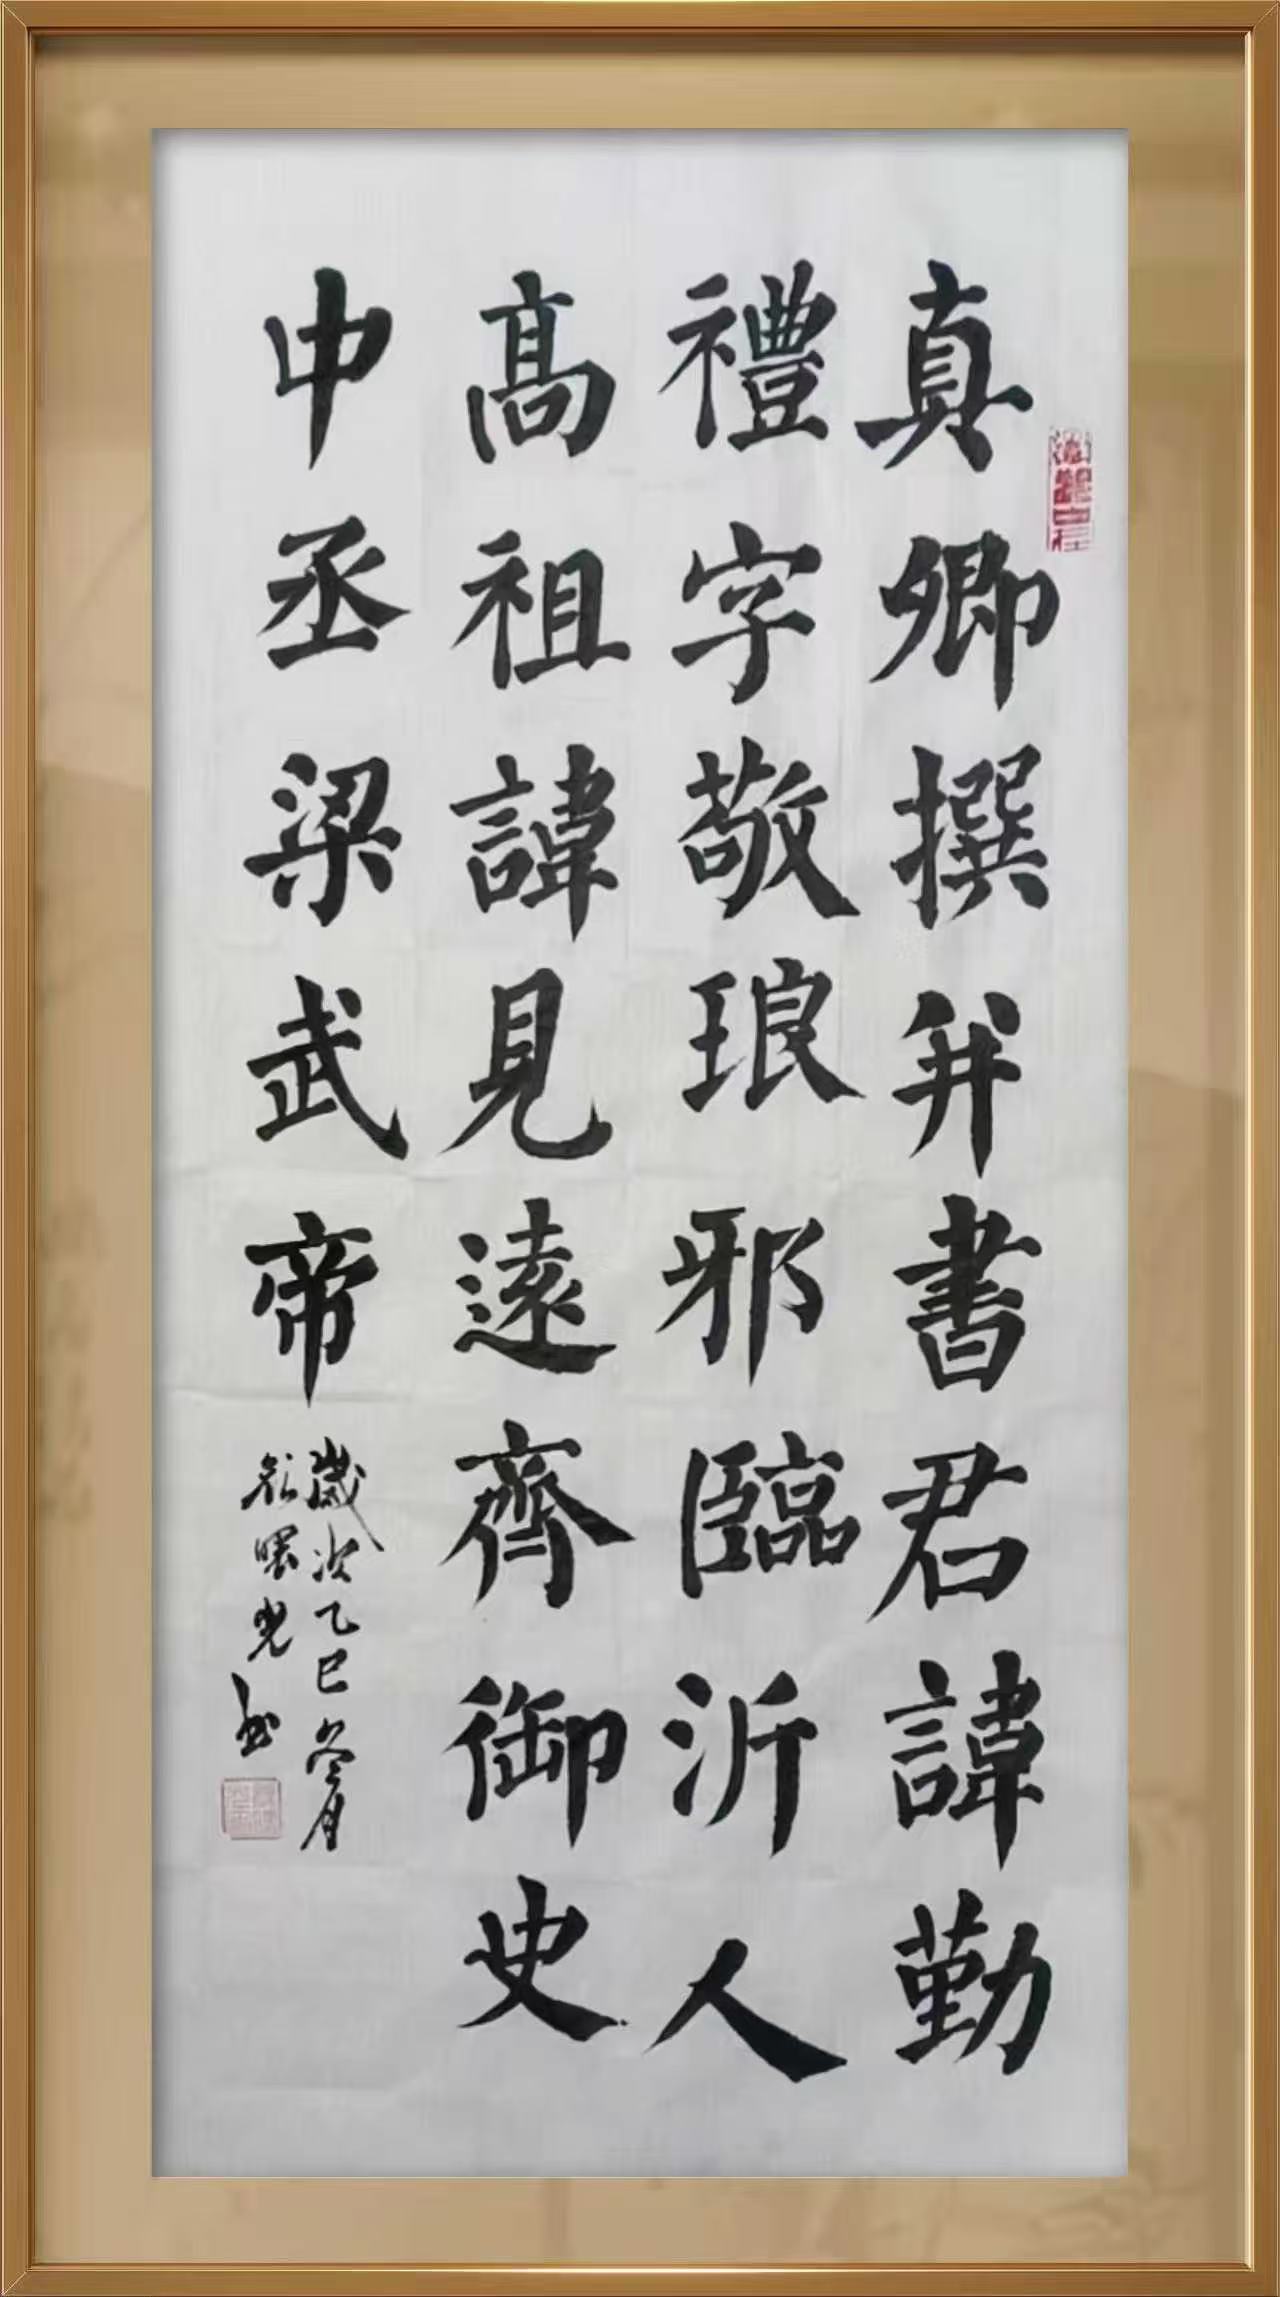 真卿撰并書君諱勤
禮字敬琅邪臨沂人
高祖諱見遠齊御史
中丞梁武帝
歲次乙巳冬月
曙光書